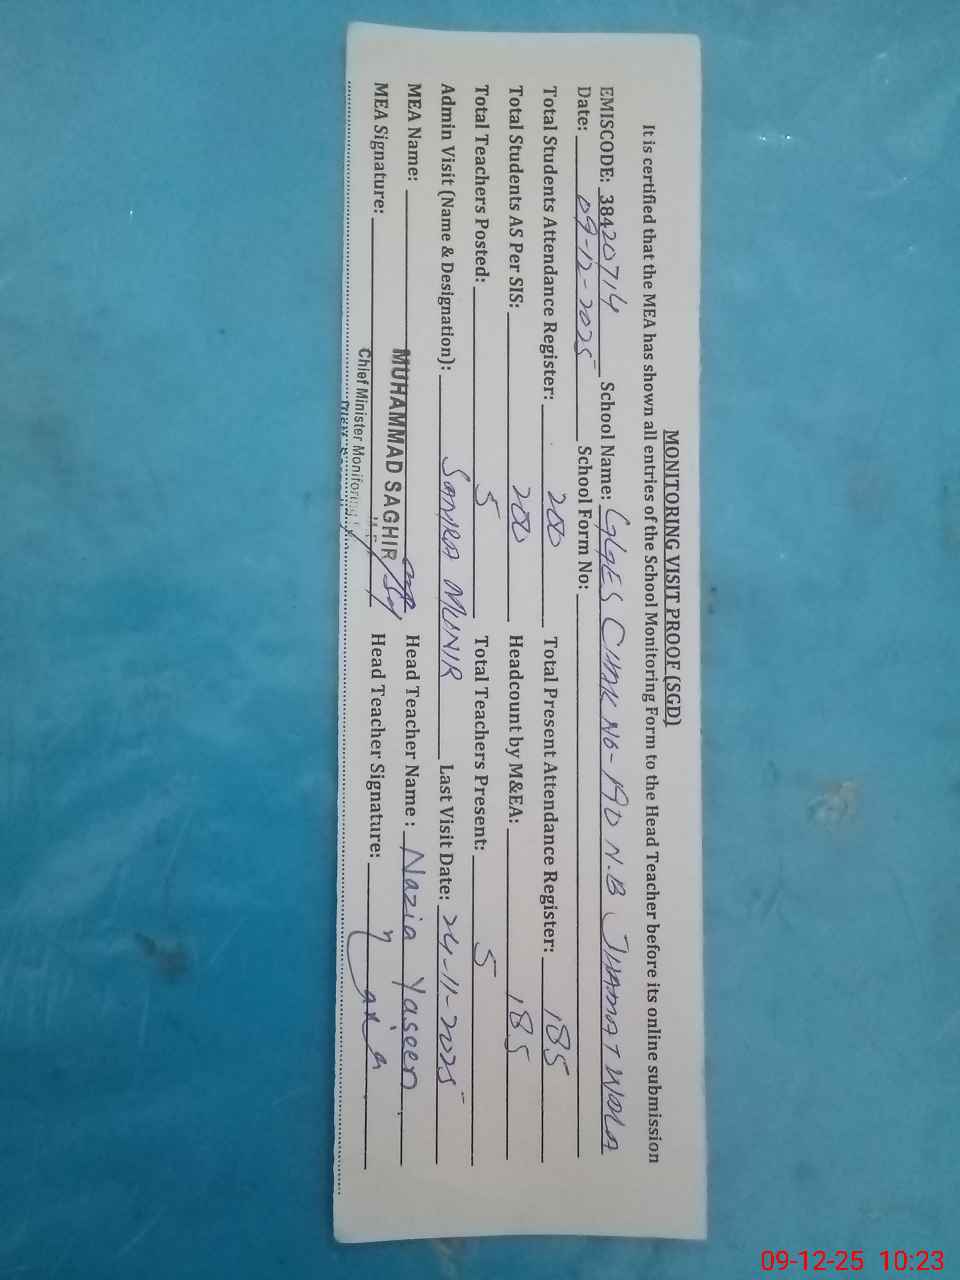 MONITORING VISIT PROOF (SGD)
It is certified that the MEA has shown all entries of the School Monitoring Form to the Head Teacher before its online submission
EMISCODE: 38420714 School Name: GGES CHAK NO-190 N.B JHAMAT WALA
Date: 09-12-2025 School Form No:
Total Students Attendance Register: 200 Total Present Attendance Register: 185
Total Students AS Per SIS: 200 Headcount by M&EA: 185
Total Teachers Posted: 5 Total Teachers Present: 5
Admin Visit (Name & Designation): SAMRA MUNIR Last Visit Date: 24-11-2025
MEA Name: MUHAMMAD SAGHIR Head Teacher Name : Nazia Yaseen
MEA Signature: Chief Minister Monitoring Head Teacher Signature: Nazia
09-12-25 10:23